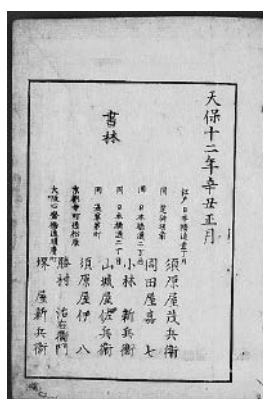 天保十二年辛丑正月
書林
江戸日本橋通壱丁目 須原屋茂兵衛
同 芝神明前 岡田屋嘉七
同 日本橋通二丁目 小林新兵衛
同 日本橋通二丁目 山城屋佐兵衛
同 浅草茅町 須原屋伊八
京都寺町通松原 勝村治右衛門
大阪心斎橋通順慶町 堺屋新兵衛